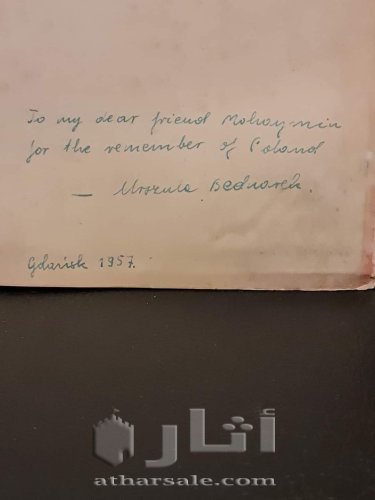 To my dear friend Mohaymin
for the remember of Poland
— Urszula Bednarek.
Gdańsk 1957.
أثار
atharsale.com